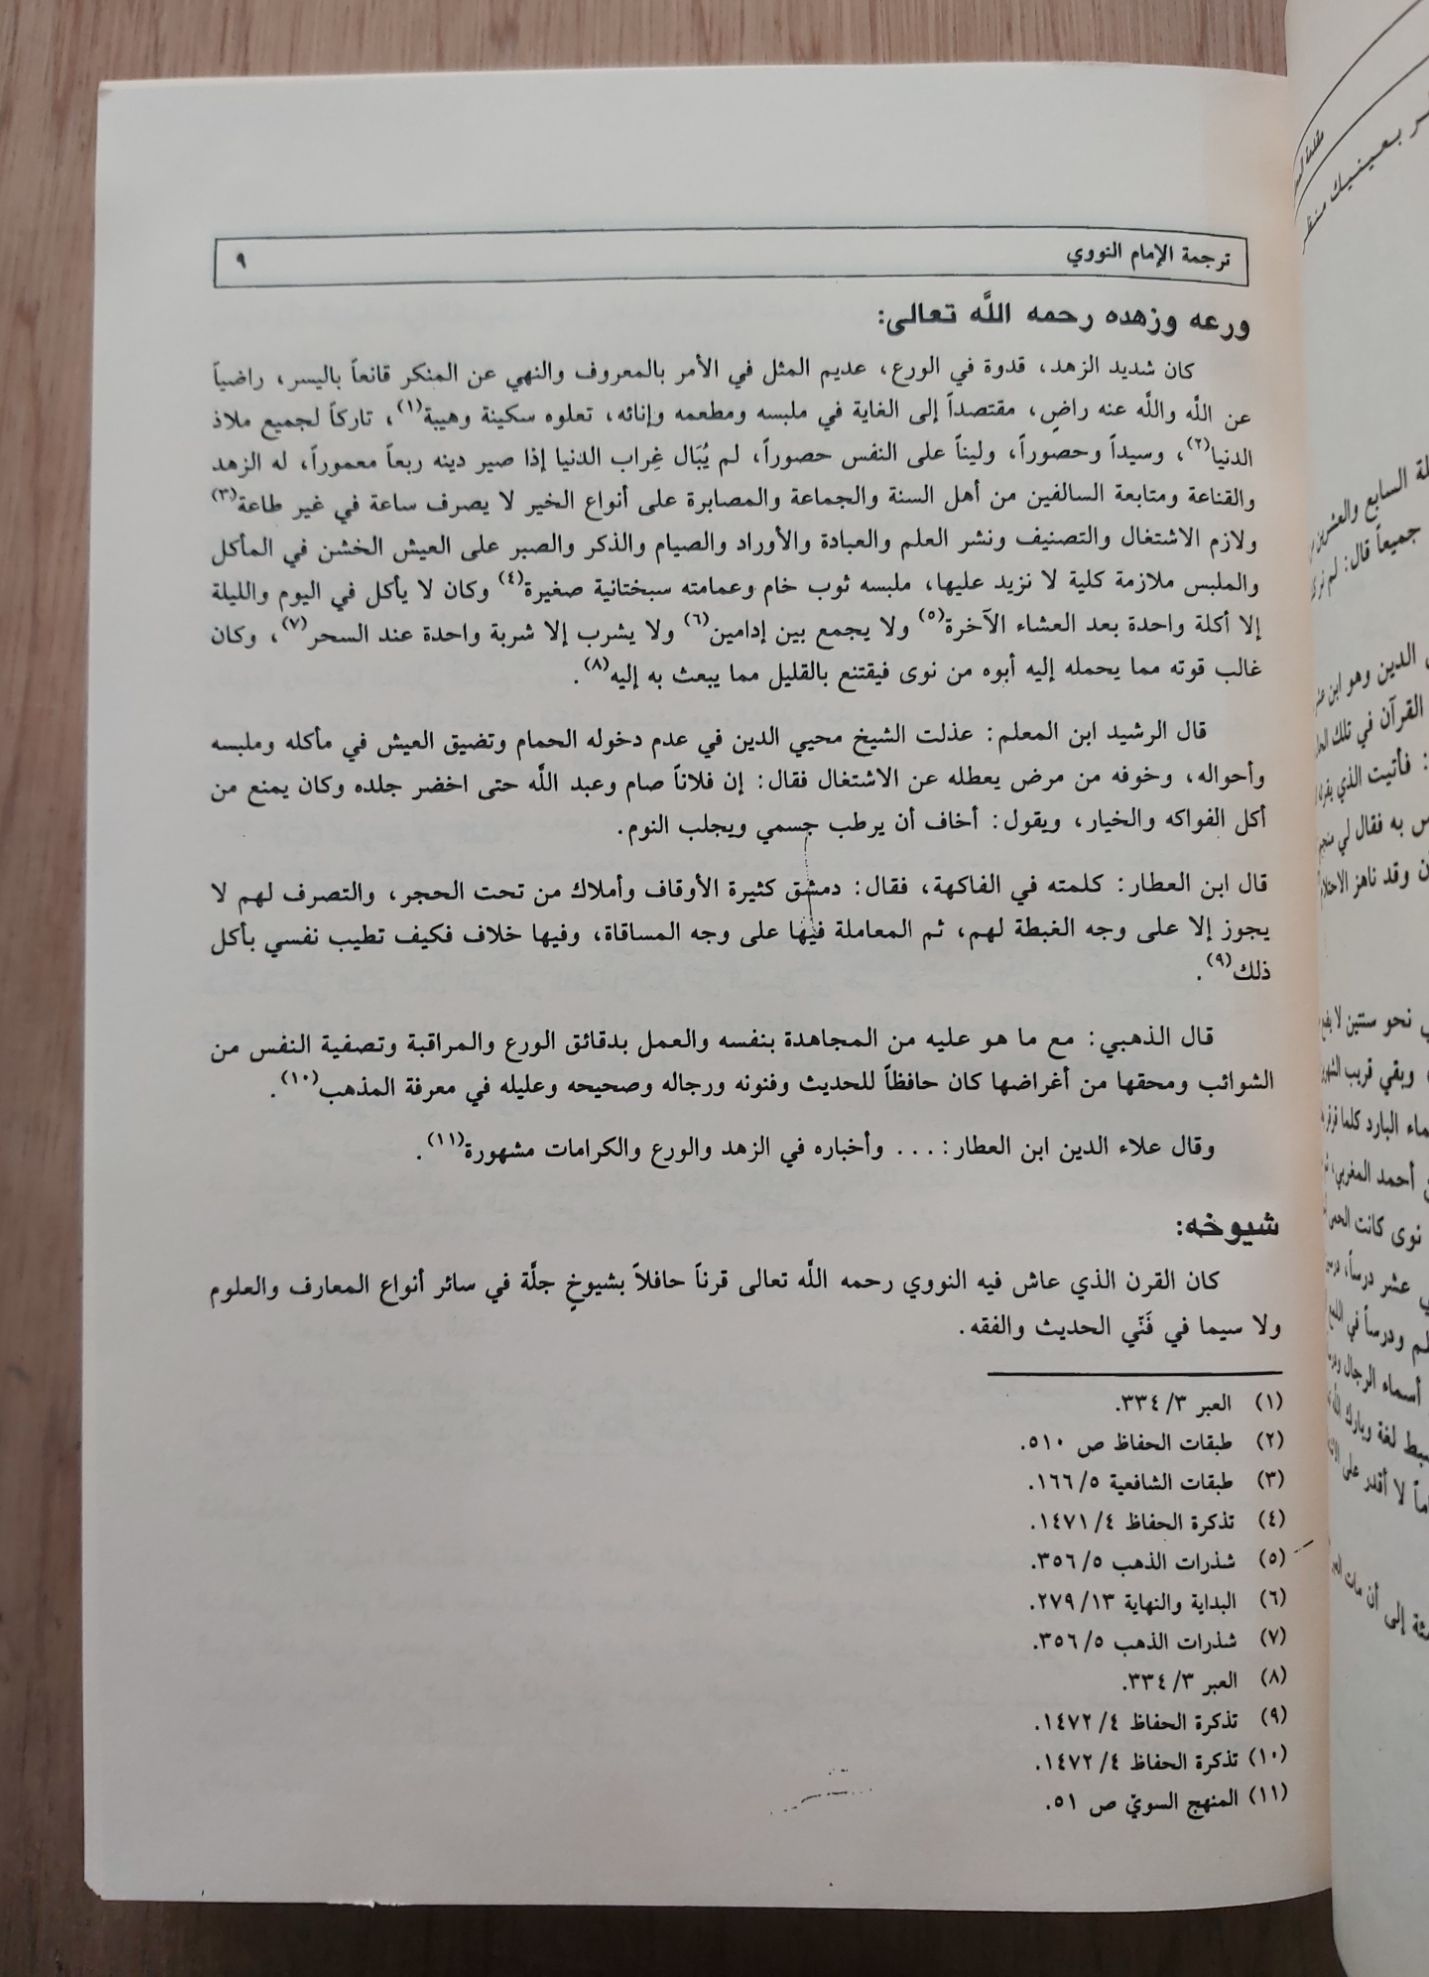 ترجمة الإمام النووي ٩
ورعه وزهده رحمه اللَّه تعالى:
كان شديد الزهد، قدوة في الورع، عديم المثل في الأمر بالمعروف والنهي عن المنكر قانعاً باليسر، راضياً
عن اللَّه واللَّه عنه راضٍ، مقتصداً إلى الغاية في ملبسه ومطعمه وإنائه، تعلوه سكينة وهيبة(١)، تاركاً لجميع ملاذ
الدنيا(٢)، وسيداً وحصوراً، وليناً على النفس حصوراً، لم يُبَال غِراب الدنيا إذا صير دينه ربعاً معموراً، له الزهد
والقناعة ومتابعة السالفين من أهل السنة والجماعة والمصابرة على أنواع الخير لا يصرف ساعة في غير طاعة(٣)
ولازم الاشتغال والتصنيف ونشر العلم والعبادة والأوراد والصيام والذكر والصبر على العيش الخشن في المأكل
والملبس ملازمة كلية لا نزيد عليها، ملبسه ثوب خام وعمامته سبختانية صغيرة(٤) وكان لا يأكل في اليوم والليلة
إلا أكلة واحدة بعد العشاء الآخرة(٥) ولا يجمع بين إدامين(٦) ولا يشرب إلا شربة واحدة عند السحر(٧)، وكان
غالب قوته مما يحمله إليه أبوه من نوى فيقتنع بالقليل مما يبعث به إليه(٨).
قال الرشيد ابن المعلم: عذلت الشيخ محيي الدين في عدم دخوله الحمام وتضيق العيش في مأكله وملبسه
وأحواله، وخوفه من مرض يعطله عن الاشتغال فقال: إن فلاناً صام وعبد اللَّه حتى اخضر جلده وكان يمنع من
أكل الفواكه والخيار، ويقول: أخاف أن يرطب جسمي ويجلب النوم.
قال ابن العطار: كلمته في الفاكهة، فقال: دمشق كثيرة الأوقاف وأملاك من تحت الحجر، والتصرف لهم لا
يجوز إلا على وجه الغبطة لهم، ثم المعاملة فيها على وجه المساقاة، وفيها خلاف فكيف تطيب نفسي بأكل
ذلك(٩).
قال الذهبي: مع ما هو عليه من المجاهدة بنفسه والعمل بدقائق الورع والمراقبة وتصفية النفس من
الشوائب ومحقها من أغراضها كان حافظاً للحديث وفنونه ورجاله وصحيحه وعليله في معرفة المذهب(١٠).
وقال علاء الدين ابن العطار: ... وأخباره في الزهد والورع والكرامات مشهورة(١١).
شيوخه:
كان القرن الذي عاش فيه النووي رحمه اللَّه تعالى قرناً حافلاً بشيوخٍ جلَّة في سائر أنواع المعارف والعلوم
ولا سيما في فَنّي الحديث والفقه.
(١) العبر ٣/ ٣٣٤.
(٢) طبقات الحفاظ ص ٥١٠.
(٣) طبقات الشافعية ٥/ ١٦٦.
(٤) تذكرة الحفاظ ٤/ ١٤٧١.
(٥) شذرات الذهب ٥/ ٣٥٦.
(٦) البداية والنهاية ١٣/ ٢٧٩.
(٧) شذرات الذهب ٥/ ٣٥٦.
(٨) العبر ٣/ ٣٣٤.
(٩) تذكرة الحفاظ ٤/ ١٤٧٢.
(١٠) تذكرة الحفاظ ٤/ ١٤٧٢.
(١١) المنهج السويّ ص ٥١.
بعينيك
السابع والعشرين
جميعاً قال: لم
الدين وهو ابن
القرآن في تلك
: فأتيت الذي
به فقال لي
وقد ناهز
نحو سنتين لا
وبقي قريب
البارد كلما
أحمد المغربي،
نوى كانت
عشر درساً،
ودرساً في
أسماء الرجال
لغة وبارك
لا أقدر على
إلى أن مات